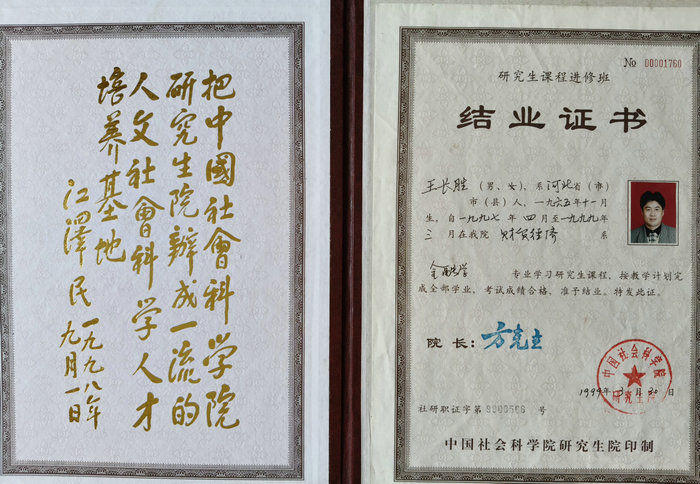 把中國社會科学院
研究生院辦成一流的
人文社會科学人才
培养基地
江泽民
一九九八年
九月一日
No 00001760
研究生课程进修班
结业证书
王长胜（男、女），系河北省（市）
市（县）人，一九六五年十一月
生，自一九九七年四月至一九九九年
三月在我院 财贸经济 系
金融学 专业学习研究生课程，按教学计划完
成全部学业，考试成绩合格，准予结业。特发此证。
院长：方克立
中国社会科学院
研究生院
1999年3月30日
社研职证字第0000566号
中国社会科学院研究生院印制